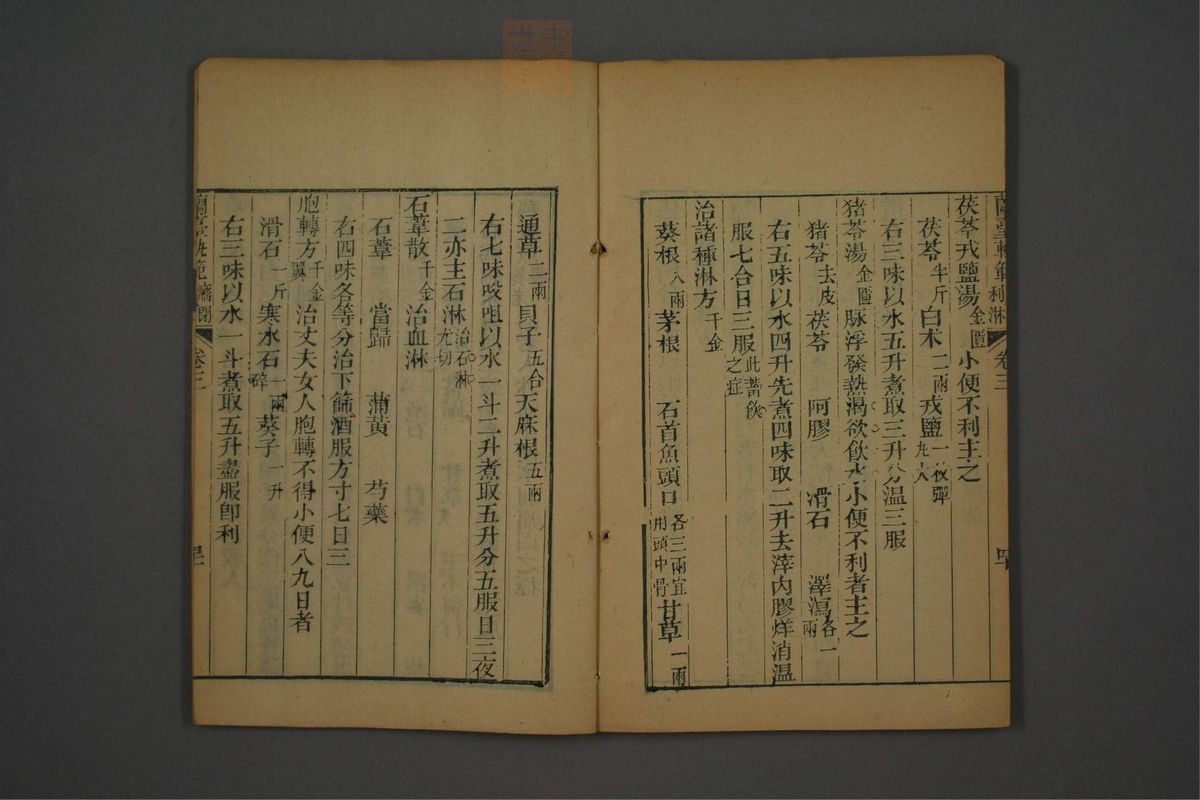 蘭臺軌範 利淋 卷三 四十
茯苓戎鹽湯金匱 小便不利主之
茯苓半斤 白朮二兩 戎鹽一枚彈丸大
右三味以水五升煮取三升分温三服
猪苓湯金匱 脉浮發熱渴欲飲水小便不利者主之
猪苓去皮 茯苓 阿膠 滑石 澤瀉各一兩
右五味以水四升先煮四味取二升去滓内膠烊消温
服七合日三服此蓄飲之症
治諸種淋方千金
葵根八兩 茅根 石首魚頭口各三兩宜用頭中骨 甘草一兩
通草二兩 貝子五合 天麻根五兩
右七味㕮咀以水一斗二升煮取五升分五服日三夜
二亦主石淋治石淋尤切
石葦散千金 治血淋
石葦 當歸 蒲黄 芍藥
右四味各等分治下篩酒服方寸七日三
胞轉方千金翼 治丈夫女人胞轉不得小便八九日者
滑石一斤 寒水石一兩碎 葵子一升
右三味以水一斗煮取五升盡服卽利
蘭臺軌範 癃閉 卷三